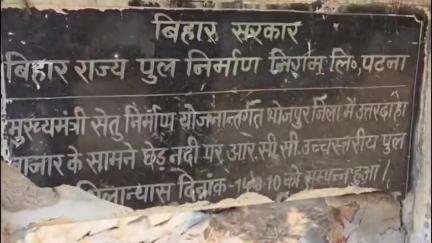 बिहार सरकार
बिहार राज्य पुल निर्माण निगम लि०, पटना
मुख्यमंत्री सेतु निर्माण योजनान्तर्गत भोजपुर जिला में उतरदाहा
बाजार के सामने छेड़ नदी पर आर.सी.सी. उच्चस्तरीय पुल
शिलान्यास दिनांक को सम्पन्न हुआ।